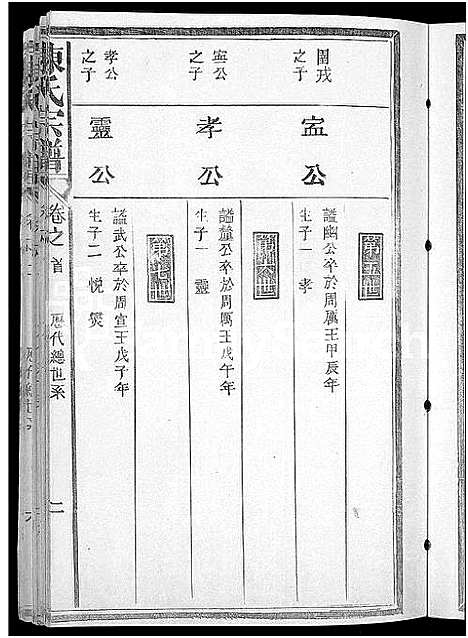 第五世
圉戎之子
寍公
謚幽公卒於周厲王甲辰年
生子一孝
第六世
寍公之子
孝公
謚釐公卒於周厲王戊午年
生子一靈
第七世
孝公之子
靈公
謚武公卒於周宣王戊子年
生子二悅爕
陳氏宗譜
卷之首
歷代總世系
二